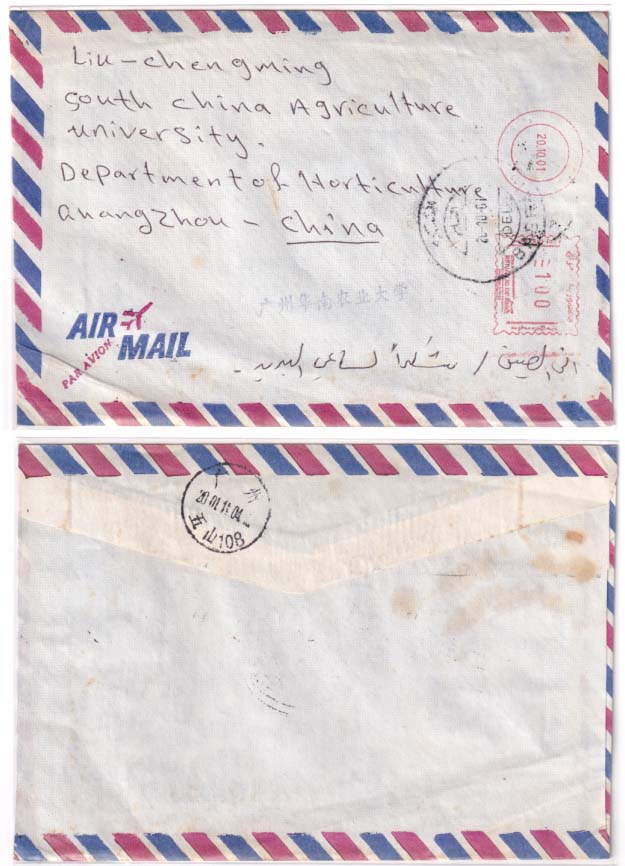 Liu-chengming
south china Agriculture
university.
Department of Horticulture
Guangzhou - China
20.10.01
100
广州华南农业大学
AIR MAIL
PAR AVION
الى الصين / شكراً لساعي البريد
2001.11.04
五山108